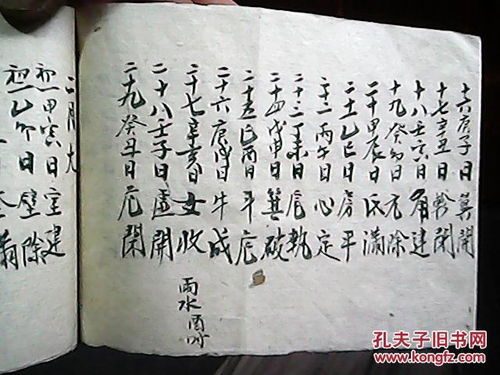 十六庚子日翼開
十七辛丑日軫閉
十八壬寅日角建
十九癸卯日亢除
二十甲辰日氐滿
二十一乙巳日房平
二十二丙午日心定
二十三丁未日尾執
二十四戊申日箕破
二十五己酉日斗危
二十六庚戌日牛成
二十七辛亥日女收
雨水酉時
二十八壬子日虛開
二十九癸丑日危閉
二月大
初一甲寅日室建
初二乙卯日壁除
孔夫子旧书网
www.kongfz.com